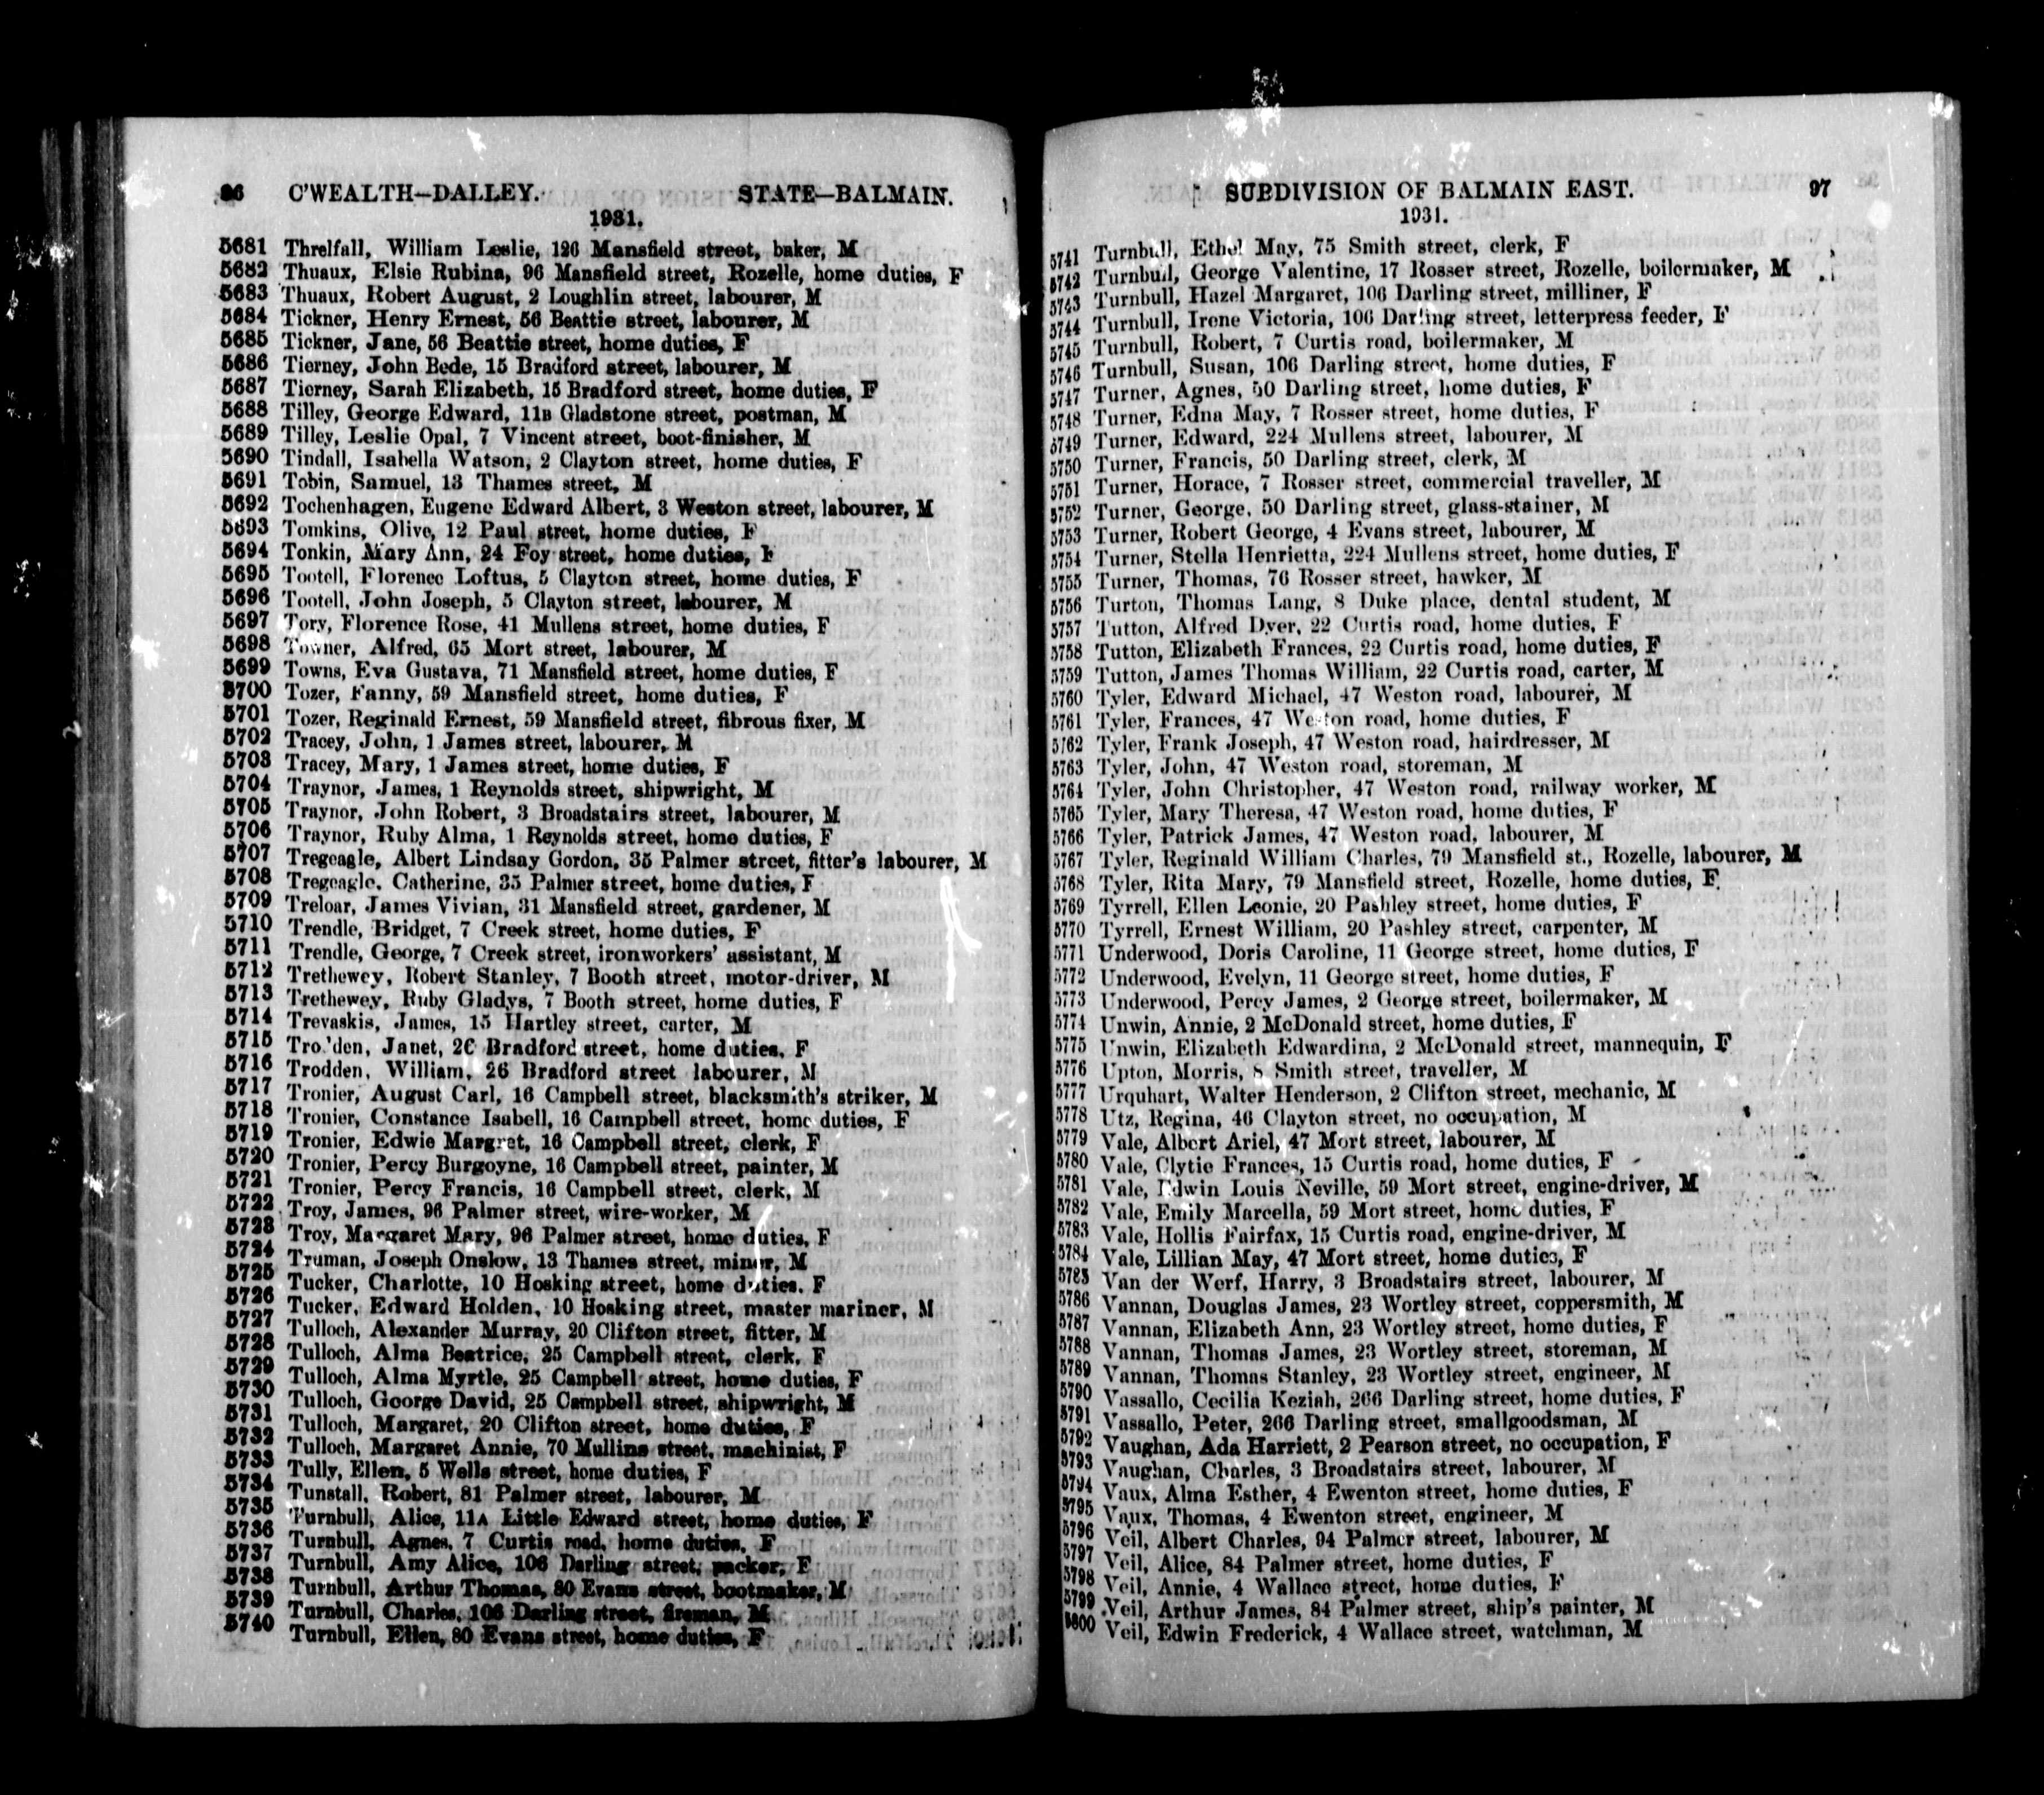 96 C'WEALTH—DALLEY. STATE—BALMAIN.
1931.
5681 Threlfall, William Leslie, 126 Mansfield street, baker, M
5682 Thuaux, Elsie Rubina, 96 Mansfield street, Rozelle, home duties, F
5683 Thuaux, Robert August, 2 Loughlin street, labourer, M
5684 Tickner, Henry Ernest, 56 Beattie street, labourer, M
5685 Tickner, Jane, 56 Beattie street, home duties, F
5686 Tierney, John Bede, 15 Bradford street, labourer, M
5687 Tierney, Sarah Elizabeth, 15 Bradford street, home duties, F
5688 Tilley, George Edward, 11B Gladstone street, postman, M
5689 Tilley, Leslie Opal, 7 Vincent street, boot-finisher, M
5690 Tindall, Isabella Watson, 2 Clayton street, home duties, F
5691 Tobin, Samuel, 13 Thames street, M
5692 Tochenhagen, Eugene Edward Albert, 3 Weston street, labourer, M
5693 Tomkins, Olive, 12 Paul street, home duties, F
5694 Tonkin, Mary Ann, 24 Foy street, home duties, F
5695 Tootell, Florence Loftus, 5 Clayton street, home duties, F
5696 Tootell, John Joseph, 5 Clayton street, labourer, M
5697 Tory, Florence Rose, 41 Mullens street, home duties, F
5698 Towner, Alfred, 65 Mort street, labourer, M
5699 Towns, Eva Gustava, 71 Mansfield street, home duties, F
5700 Tozer, Fanny, 59 Mansfield street, home duties, F
5701 Tozer, Reginald Ernest, 59 Mansfield street, fibrous fixer, M
5702 Tracey, John, 1 James street, labourer, M
5703 Tracey, Mary, 1 James street, home duties, F
5704 Traynor, James, 1 Reynolds street, shipwright, M
5705 Traynor, John Robert, 3 Broadstairs street, labourer, M
5706 Traynor, Ruby Alma, 1 Reynolds street, home duties, F
5707 Tregeagle, Albert Lindsay Gordon, 35 Palmer street, fitter's labourer, M
5708 Tregeagle, Catherine, 35 Palmer street, home duties, F
5709 Treloar, James Vivian, 31 Mansfield street, gardener, M
5710 Trendle, Bridget, 7 Creek street, home duties, F
5711 Trendle, George, 7 Creek street, ironworkers' assistant, M
5712 Trethewey, Robert Stanley, 7 Booth street, motor-driver, M
5713 Trethewey, Ruby Gladys, 7 Booth street, home duties, F
5714 Trevaskis, James, 15 Hartley street, carter, M
5715 Trodden, Janet, 26 Bradford street, home duties, F
5716 Trodden, William, 26 Bradford street labourer, M
5717 Tronier, August Carl, 16 Campbell street, blacksmith's striker, M
5718 Tronier, Constance Isabell, 16 Campbell street, home duties, F
5719 Tronier, Edwie Margret, 16 Campbell street, clerk, F
5720 Tronier, Percy Burgoyne, 16 Campbell street, painter, M
5721 Tronier, Percy Francis, 16 Campbell street, clerk, M
5722 Troy, James, 96 Palmer street, wire-worker, M
5723 Troy, Margaret Mary, 96 Palmer street, home duties, F
5724 Truman, Joseph Onslow, 13 Thames street, miner, M
5725 Tucker, Charlotte, 10 Hosking street, home duties, F
5726 Tucker, Edward Holden, 10 Hosking street, master mariner, M
5727 Tulloch, Alexander Murray, 20 Clifton street, fitter, M
5728 Tulloch, Alma Beatrice, 25 Campbell street, clerk, F
5729 Tulloch, Alma Myrtle, 25 Campbell street, home duties, F
5730 Tulloch, George David, 25 Campbell street, shipwright, M
5731 Tulloch, Margaret, 20 Clifton street, home duties, F
5732 Tulloch, Margaret Annie, 70 Mullins street, machinist, F
5733 Tully, Ellen, 5 Wells street, home duties, F
5734 Tunstall, Robert, 81 Palmer street, labourer, M
5735 Turnbull, Alice, 11A Little Edward street, home duties, F
5736 Turnbull, Agnes, 7 Curtis road, home duties, F
5737 Turnbull, Amy Alice, 106 Darling street, packer, F
5738 Turnbull, Arthur Thomas, 80 Evans street, bootmaker, M
5739 Turnbull, Charles, 106 Darling street, fireman, M
5740 Turnbull, Ellen, 80 Evans street, home duties, F
SUBDIVISION OF BALMAIN EAST. 97
1931.
5741 Turnbull, Ethel May, 75 Smith street, clerk, F
5742 Turnbull, George Valentine, 17 Rosser street, Rozelle, boilermaker, M
5743 Turnbull, Hazel Margaret, 106 Darling street, milliner, F
5744 Turnbull, Irene Victoria, 106 Darling street, letterpress feeder, F
5745 Turnbull, Robert, 7 Curtis road, boilermaker, M
5746 Turnbull, Susan, 106 Darling street, home duties, F
5747 Turner, Agnes, 50 Darling street, home duties, F
5748 Turner, Edna May, 7 Rosser street, home duties, F
5749 Turner, Edward, 224 Mullens street, labourer, M
5750 Turner, Francis, 50 Darling street, clerk, M
5751 Turner, Horace, 7 Rosser street, commercial traveller, M
5752 Turner, George, 50 Darling street, glass-stainer, M
5753 Turner, Robert George, 4 Evans street, labourer, M
5754 Turner, Stella Henrietta, 224 Mullens street, home duties, F
5755 Turner, Thomas, 76 Rosser street, hawker, M
5756 Turton, Thomas Lang, 8 Duke place, dental student, M
5757 Tutton, Alfred Dyer, 22 Curtis road, home duties, F
5758 Tutton, Elizabeth Frances, 22 Curtis road, home duties, F
5759 Tutton, James Thomas William, 22 Curtis road, carter, M
5760 Tyler, Edward Michael, 47 Weston road, labourer, M
5761 Tyler, Frances, 47 Weston road, home duties, F
5762 Tyler, Frank Joseph, 47 Weston road, hairdresser, M
5763 Tyler, John, 47 Weston road, storeman, M
5764 Tyler, John Christopher, 47 Weston road, railway worker, M
5765 Tyler, Mary Theresa, 47 Weston road, home duties, F
5766 Tyler, Patrick James, 47 Weston road, labourer, M
5767 Tyler, Reginald William Charles, 79 Mansfield st., Rozelle, labourer, M
5768 Tyler, Rita Mary, 79 Mansfield street, Rozelle, home duties, F
5769 Tyrrell, Ellen Leonie, 20 Pashley street, home duties, F
5770 Tyrrell, Ernest William, 20 Pashley street, carpenter, M
5771 Underwood, Doris Caroline, 11 George street, home duties, F
5772 Underwood, Evelyn, 11 George street, home duties, F
5773 Underwood, Percy James, 2 George street, boilermaker, M
5774 Unwin, Annie, 2 McDonald street, home duties, F
5775 Unwin, Elizabeth Edwardina, 2 McDonald street, mannequin, F
5776 Upton, Morris, 8 Smith street, traveller, M
5777 Urquhart, Walter Henderson, 2 Clifton street, mechanic, M
5778 Utz, Regina, 46 Clayton street, no occupation, M
5779 Vale, Albert Ariel, 47 Mort street, labourer, M
5780 Vale, Clytie Frances, 15 Curtis road, home duties, F
5781 Vale, Edwin Louis Neville, 59 Mort street, engine-driver, M
5782 Vale, Emily Marcella, 59 Mort street, home duties, F
5783 Vale, Hollis Fairfax, 15 Curtis road, engine-driver, M
5784 Vale, Lillian May, 47 Mort street, home duties, F
5785 Van der Werf, Harry, 3 Broadstairs street, labourer, M
5786 Vannan, Douglas James, 23 Wortley street, coppersmith, M
5787 Vannan, Elizabeth Ann, 23 Wortley street, home duties, F
5788 Vannan, Thomas James, 23 Wortley street, storeman, M
5789 Vannan, Thomas Stanley, 23 Wortley street, engineer, M
5790 Vassallo, Cecilia Keziah, 266 Darling street, home duties, F
5791 Vassallo, Peter, 266 Darling street, smallgoodsman, M
5792 Vaughan, Ada Harriett, 2 Pearson street, no occupation, F
5793 Vaughan, Charles, 3 Broadstairs street, labourer, M
5794 Vaux, Alma Esther, 4 Ewenton street, home duties, F
5795 Vaux, Thomas, 4 Ewenton street, engineer, M
5796 Veil, Albert Charles, 94 Palmer street, labourer, M
5797 Veil, Alice, 84 Palmer street, home duties, F
5798 Veil, Annie, 4 Wallace street, home duties, F
5799 Veil, Arthur James, 84 Palmer street, ship's painter, M
5800 Veil, Edwin Frederick, 4 Wallace street, watchman, M